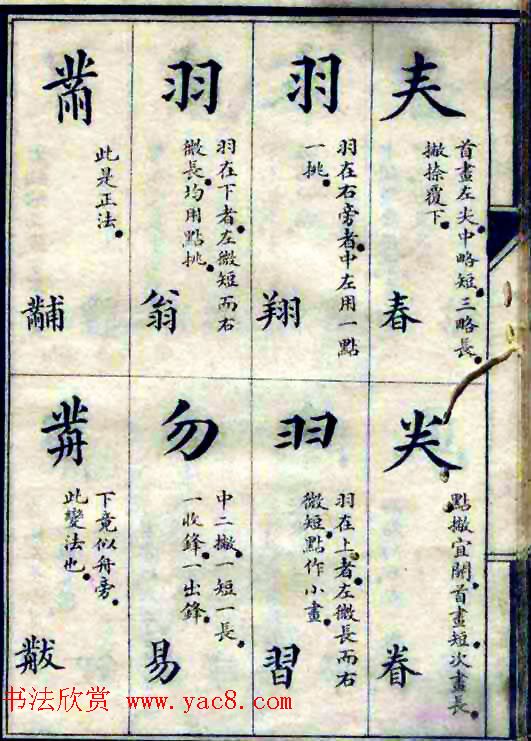 𡗗
首畫左尖。中略短。三略長。
撇捺覆下。
春
羽
羽在右旁者。中左用一點
一挑。
翔
羽
羽在下者。左微短而右
微長。均用點挑。
翁
黹
此是正法。
黼
龹
點撇宜開。首畫短。次畫長。
眷
羽
羽在上者。左微長而右
微短。點作小畫。
習
勿
中二撇。一短一長。
一收鋒。一出鋒。
易
黹
下竟似舟旁。
此變法也。
黻
书法欣赏 www.yac8.com